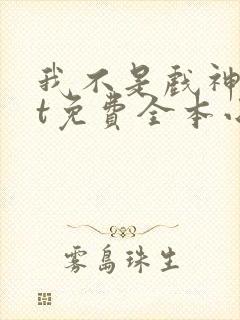 我不是戏神
t免費全本小
雾島珠生